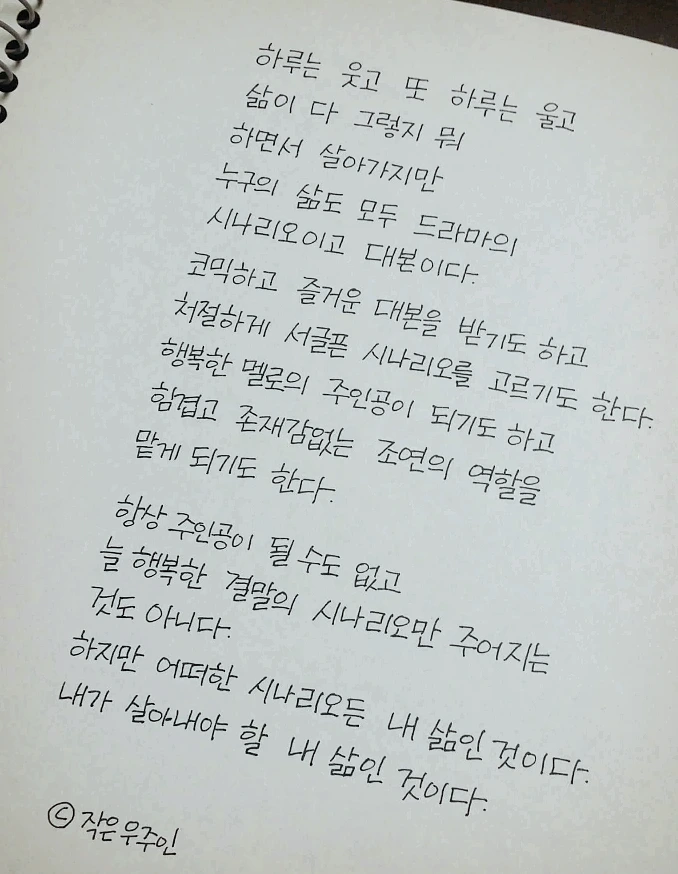 하루는 웃고 또 하루는 울고
삶이 다 그렇지 뭐
하면서 살아가지만
누구의 삶도 모두 드라마의
시나리오이고 대본이다.
코믹하고 즐거운 대본을 받기도 하고
처절하게 서글픈 시나리오를 고르기도 한다.
행복한 멜로의 주인공이 되기도 하고
힘겹고 존재감없는 조연의 역할을
맡게 되기도 한다.
항상 주인공이 될 수도 없고
늘 행복한 결말의 시나리오만 주어지는
것도 아니다.
하지만 어떠한 시나리오든 내 삶인 것이다.
내가 살아내야 할 내 삶인 것이다.
ⓒ 작은우주인